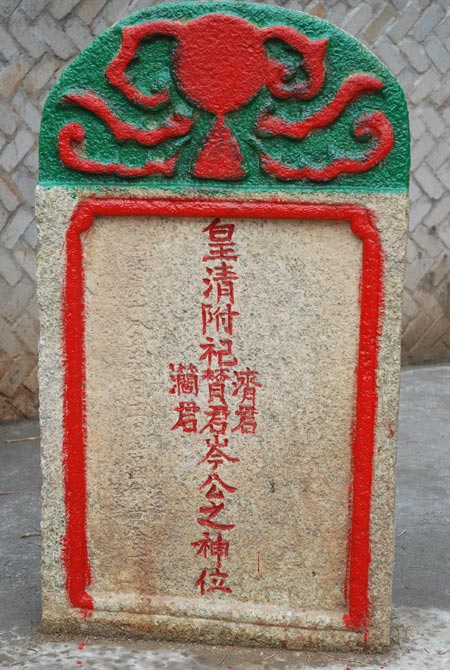 濟君
皇清附祀賛君岑公之神位
君